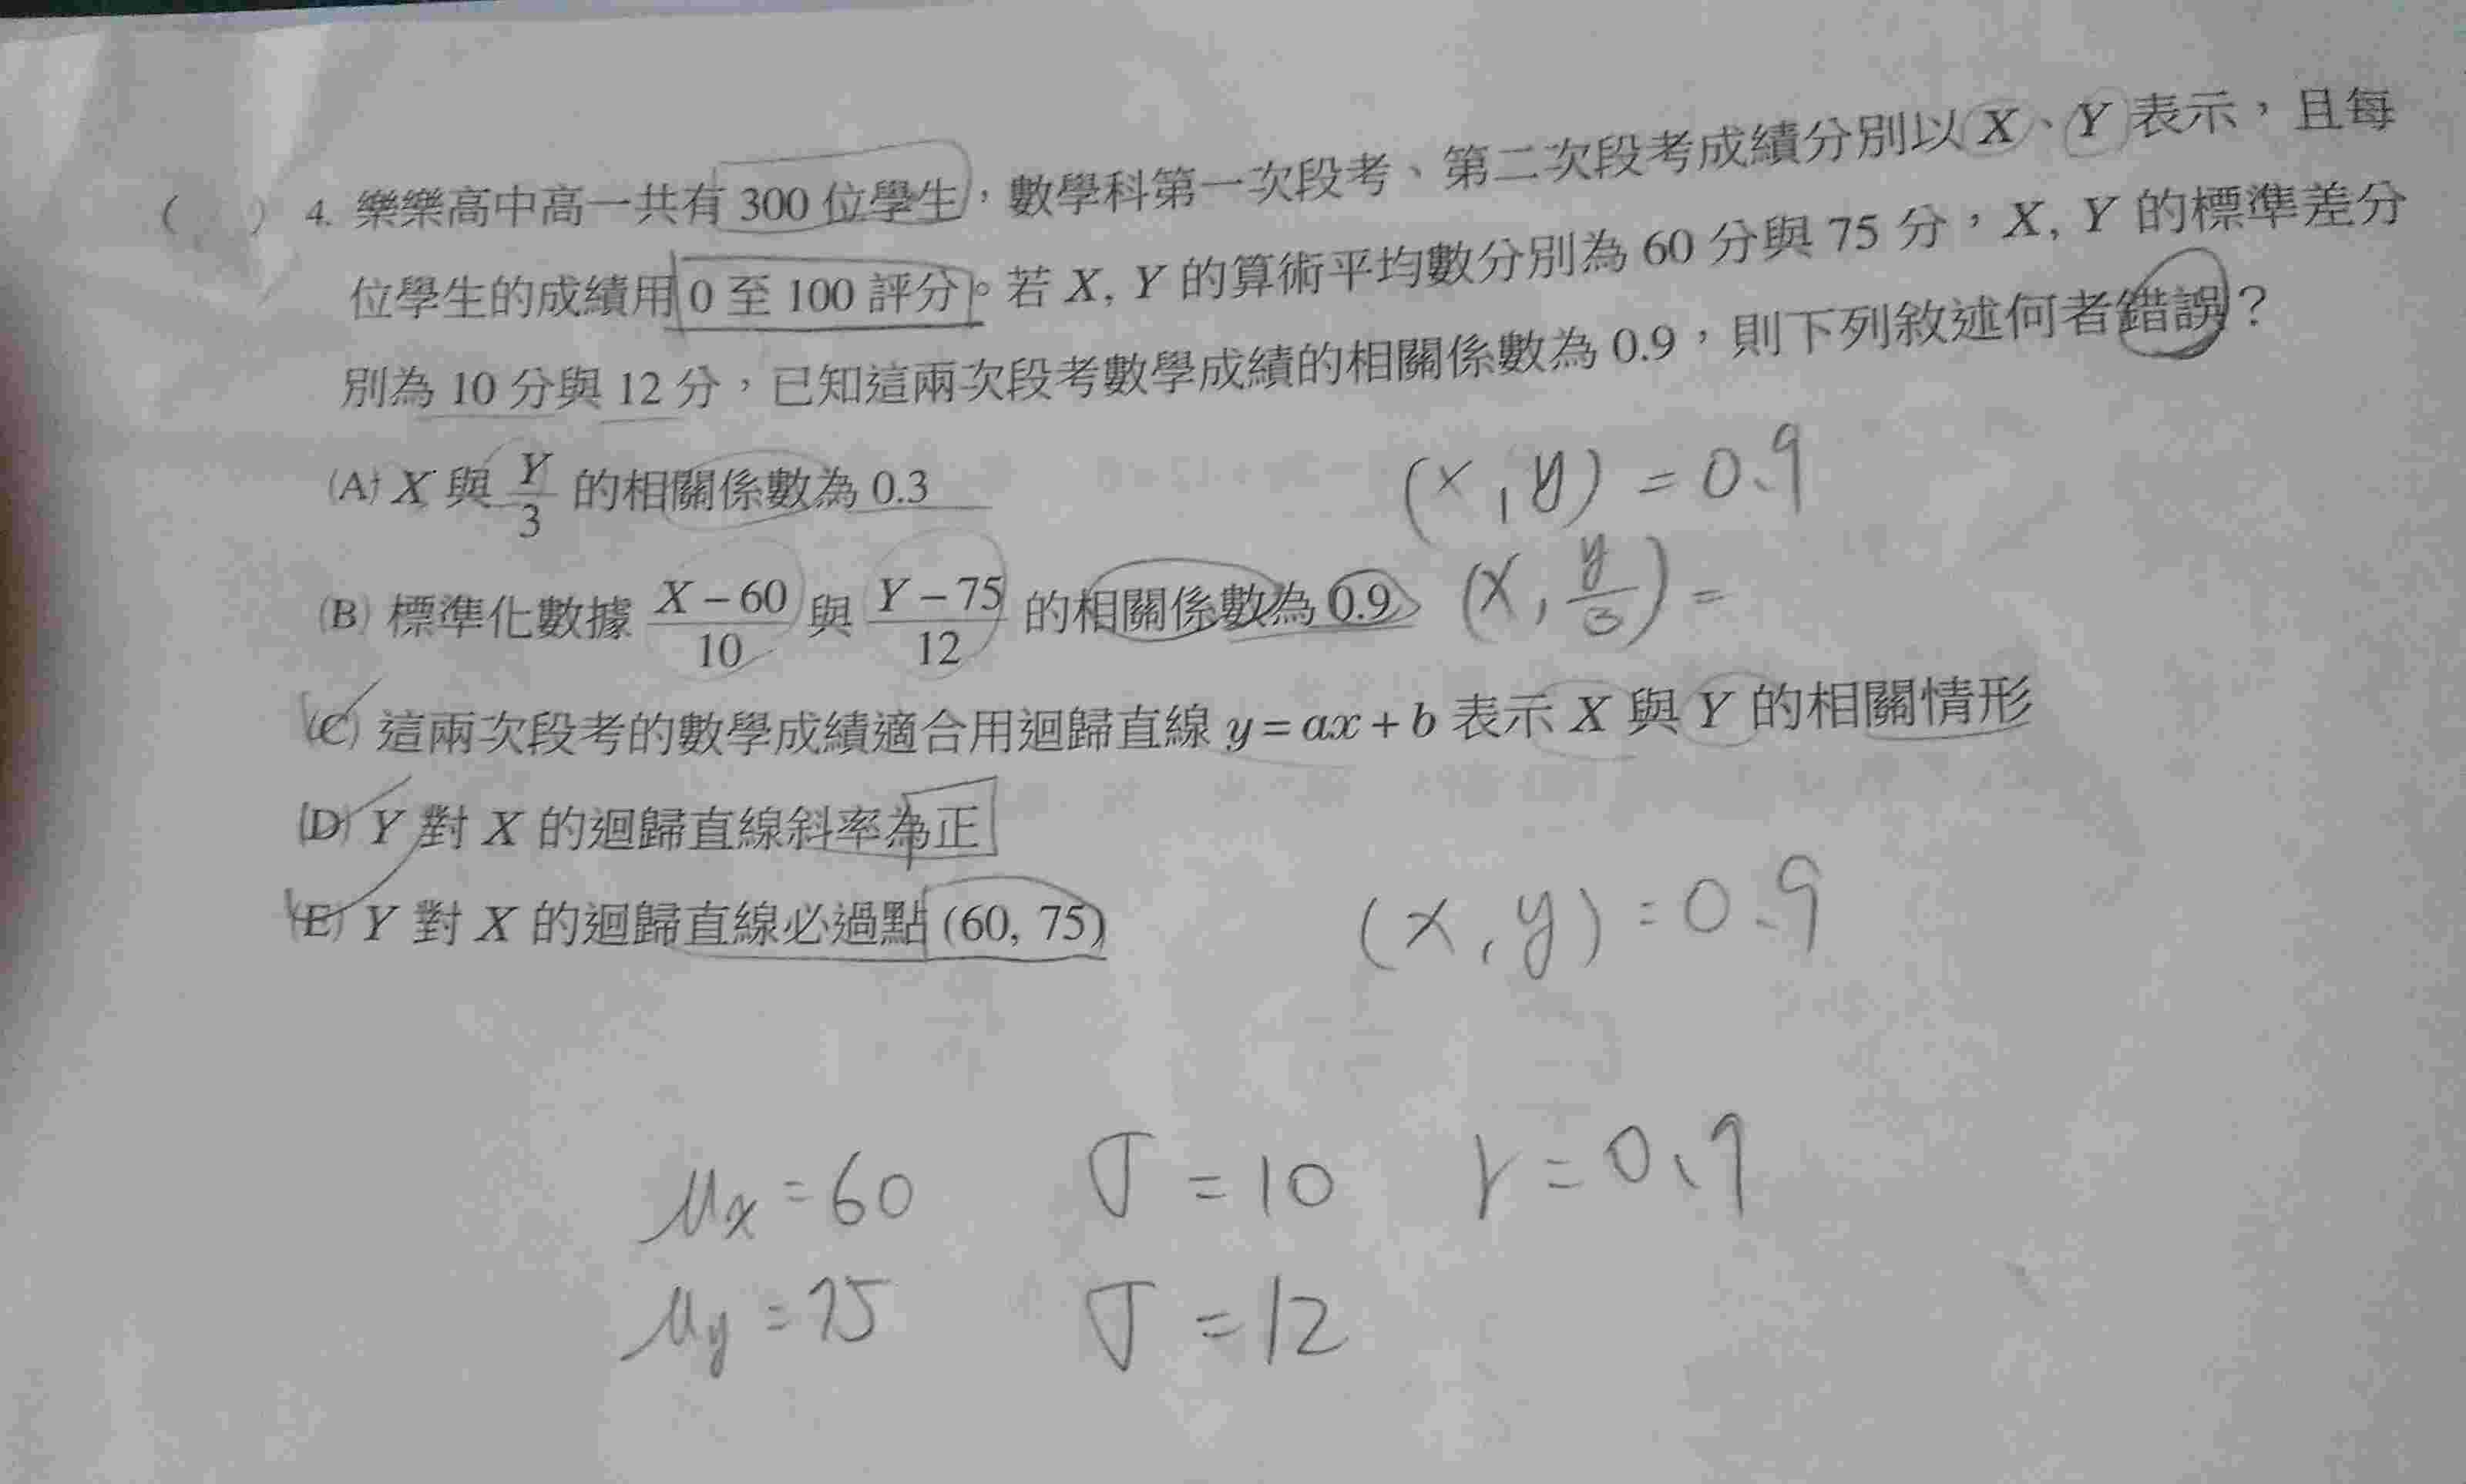 ( ) 4. 樂樂高中高一共有 300 位學生，數學科第一次段考、第二次段考成績分別以 X、Y 表示，且每
位學生的成績用 0 至 100 評分。若 X, Y 的算術平均數分別為 60 分與 75 分，X, Y 的標準差分
別為 10 分與 12 分，已知這兩次段考數學成績的相關係數為 0.9，則下列敘述何者錯誤？
(A) X 與 Y/3 的相關係數為 0.3
(x, y) = 0.9
(B) 標準化數據 (X−60)/10 與 (Y−75)/12 的相關係數為 0.9
(x, y/3) =
(C) 這兩次段考的數學成績適合用迴歸直線 y = ax + b 表示 X 與 Y 的相關情形
(D) Y 對 X 的迴歸直線斜率為正
(E) Y 對 X 的迴歸直線必過點 (60, 75)
(x, y) = 0.9
μx = 60 σ = 10 r = 0.9
μy = 75 σ = 12